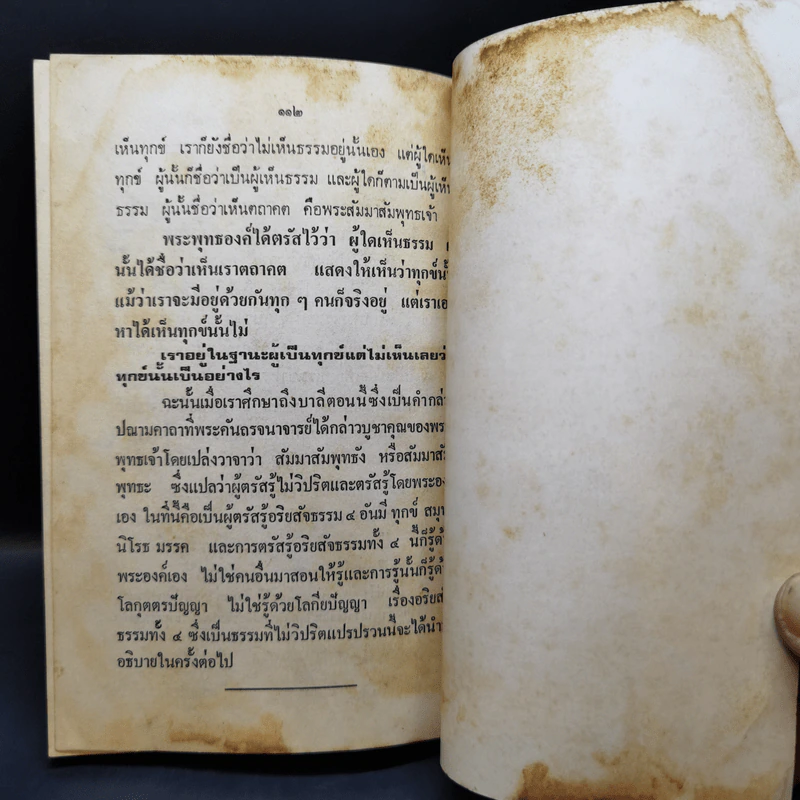 ๑๑๒
เห็นทุกข์ เราก็ยังชื่อว่าไม่เห็นธรรมอยู่นั้นเอง แต่ผู้ใดเห็น
ทุกข์ ผู้นั้นก็ชื่อว่าเป็นผู้เห็นธรรม และผู้ใดก็ตามเป็นผู้เห็น
ธรรม ผู้นั้นชื่อว่าเห็นตถาคต คือพระสัมมาสัมพุทธเจ้า
พระพุทธองค์ได้ตรัสไว้ว่า ผู้ใดเห็นธรรม
นั้นได้ชื่อว่าเห็นเราตถาคต แสดงให้เห็นว่าทุกข์นั้
แม้ว่าเราจะมีอยู่ด้วยกันทุก ๆ คนก็จริงอยู่ แต่เราเอ
หาได้เห็นทุกข์นั้นไม่
เราอยู่ในฐานะผู้เป็นทุกข์แต่ไม่เห็นเลยว่
ทุกข์นั้นเป็นอย่างไร
ฉะนั้นเมื่อเราศึกษาถึงบาลีตอนนี้ซึ่งเป็นคำกล่า
ปณามคาถาที่พระคันถรจนาจารย์ได้กล่าวบูชาคุณของพระ
พุทธเจ้าโดยเปล่งวาจาว่า สัมมาสัมพุทธัง หรือสัมมาสัม
พุทธะ ซึ่งแปลว่าผู้ตรัสรู้ไม่วิปริตและตรัสรู้โดยพระอง
เอง ในที่นี้คือเป็นผู้ตรัสรู้อริยสัจธรรม ๔ อันมี ทุกข์ สมุท
นิโรธ มรรค และการตรัสรู้อริยสัจธรรมทั้ง ๔ นี้ก็รู้ด้
พระองค์เอง ไม่ใช่คนอื่นมาสอนให้รู้และการรู้นั้นก็รู้ด้
โลกุตตรปัญญา ไม่ใช่รู้ด้วยโลกียปัญญา เรื่องอริยสั
ธรรมทั้ง ๔ ซึ่งเป็นธรรมที่ไม่วิปริตแปรปรวนนี้จะได้นำ
อธิบายในครั้งต่อไป